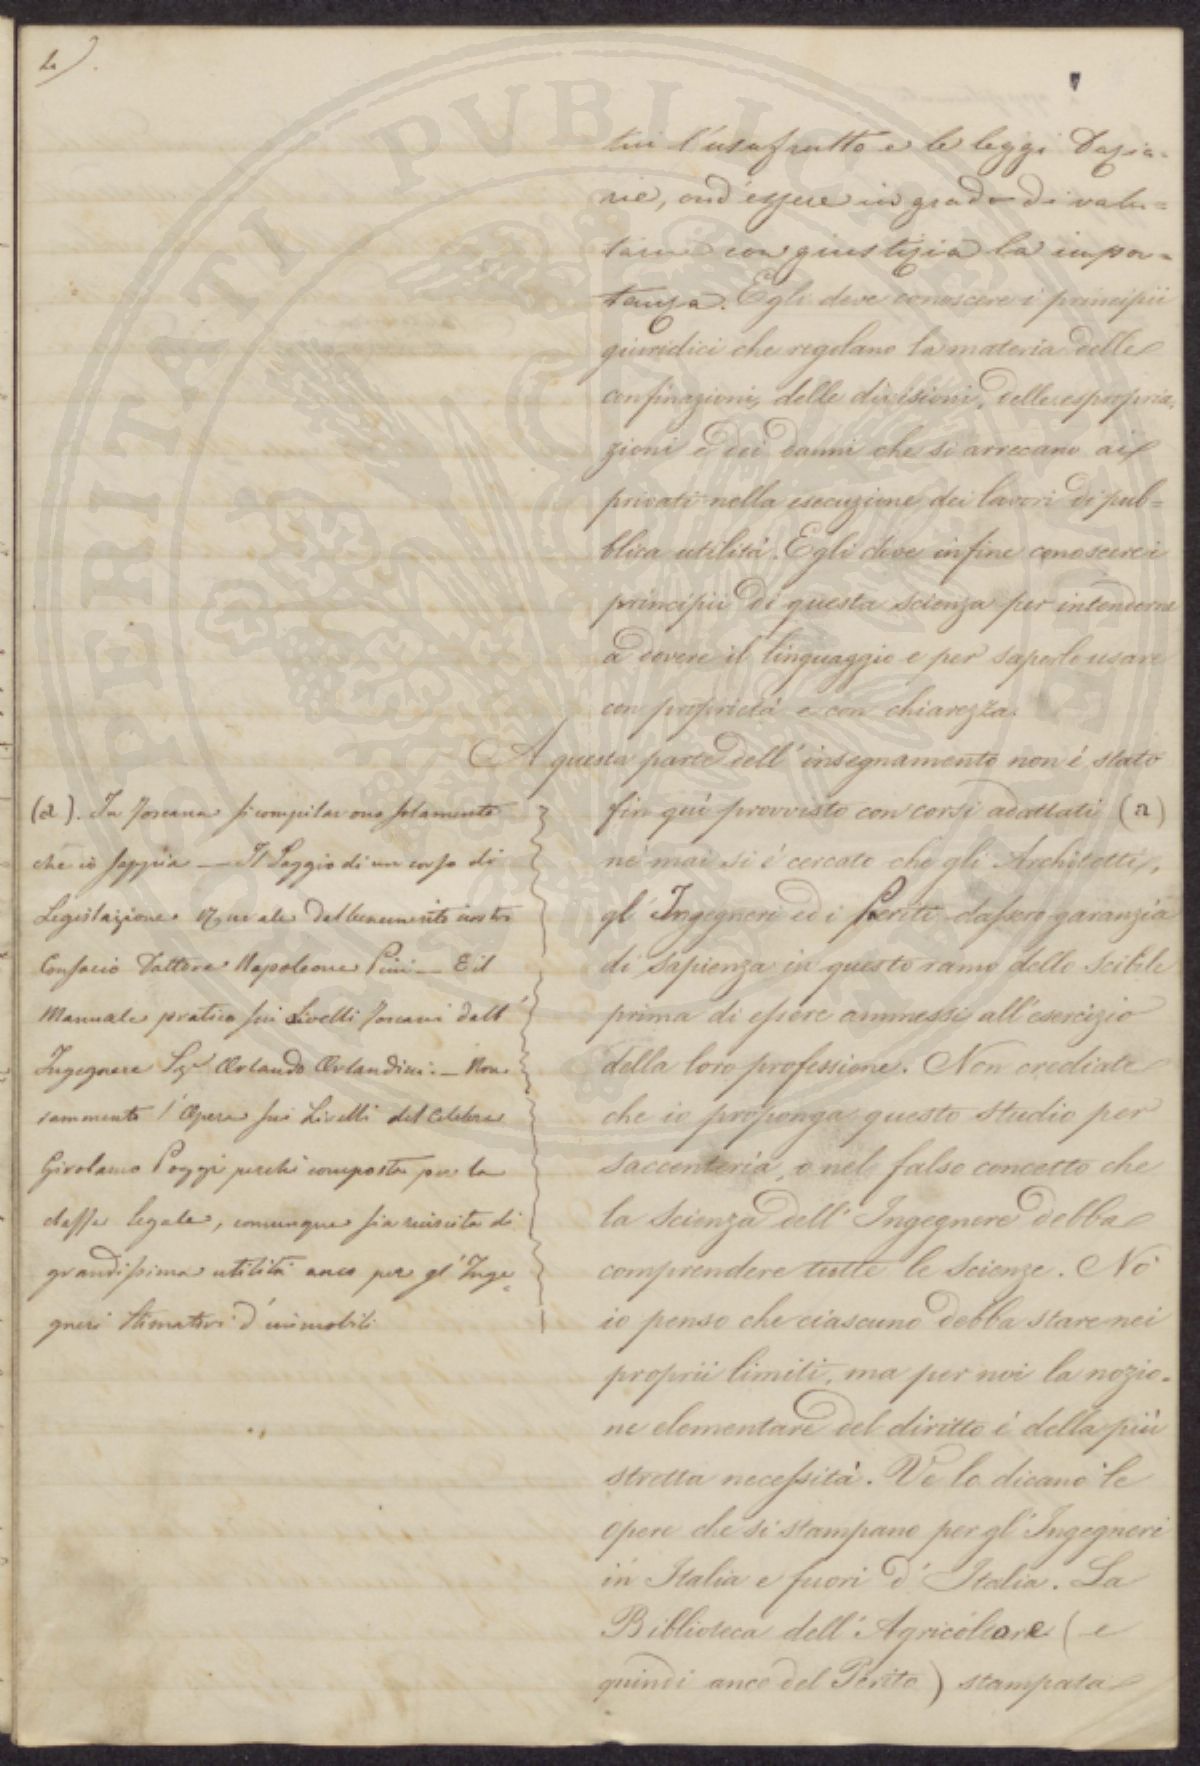 2)
tui l'usufrutto e le leggi Dazia-
rie, ond'essere in grado di valu-
tarne con giustizia la impor-
tanza. Egli deve conoscere i principii
giuridici che regolano la materia delle
confinazioni, delle divisioni, delle espropria-
zioni e dei danni che si arrecano ai
privati nella esecuzione dei lavori di pub-
blica utilità. Egli deve infine conoscere i
principii di questa scienza per intenderne
a dovere il linguaggio e per saperlo usare
con proprietà e con chiarezza.
A questa parte dell'insegnamento non é stato
fin quì provvisto con corsi adattati (a)
nè mai si é cercato che gli Architetti,
gl'Ingegneri ed i Periti dassero garanzia
di sapienza in questo ramo dello scibile
prima di essere ammessi all'esercizio
della loro professione. Non crediate
che io proponga questo studio per
saccenteria, o nel falso concetto che
la scienza dell'Ingegnere debba
comprendere tutte le scienze. Nò
io penso che ciascuno debba stare nei
proprii limiti, ma per noi la nozio-
ne elementare del diritto é della più
stretta necessità. Ve lo dicano le
opere che si stampano per gl'Ingegneri
in Italia e fuori d'Italia. La
Biblioteca dell'Agricoltore (e
quindi anco del Perito) stampata
(a). In Toscana si compilarono solamente
che io sappia — Il Saggio di un corso di
Legislazione Rurale dal benemerito nostro
Consocio Dottore Napoleone Pini — E il
Manuale pratico sui Livelli Toscani dell'
Ingegnere Sig.r Orlando Orlandini. — Non
rammento l'Opera sui Livelli del celebre
Girolamo Poggi perchè composta per la
classe legale, comunque sia riuscita di
grandissima utilità anco per gl'Inge-
gneri Stimatori d'immobili
PERITATI PUBLICAE